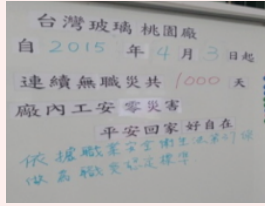 台灣玻璃 桃園廠
自 2015 年 4 月 3 日起
連續無職災共 1000 天
廠內工安 零災害
平安回家 好自在
依據職業安全衛生法
做為職災認定標準